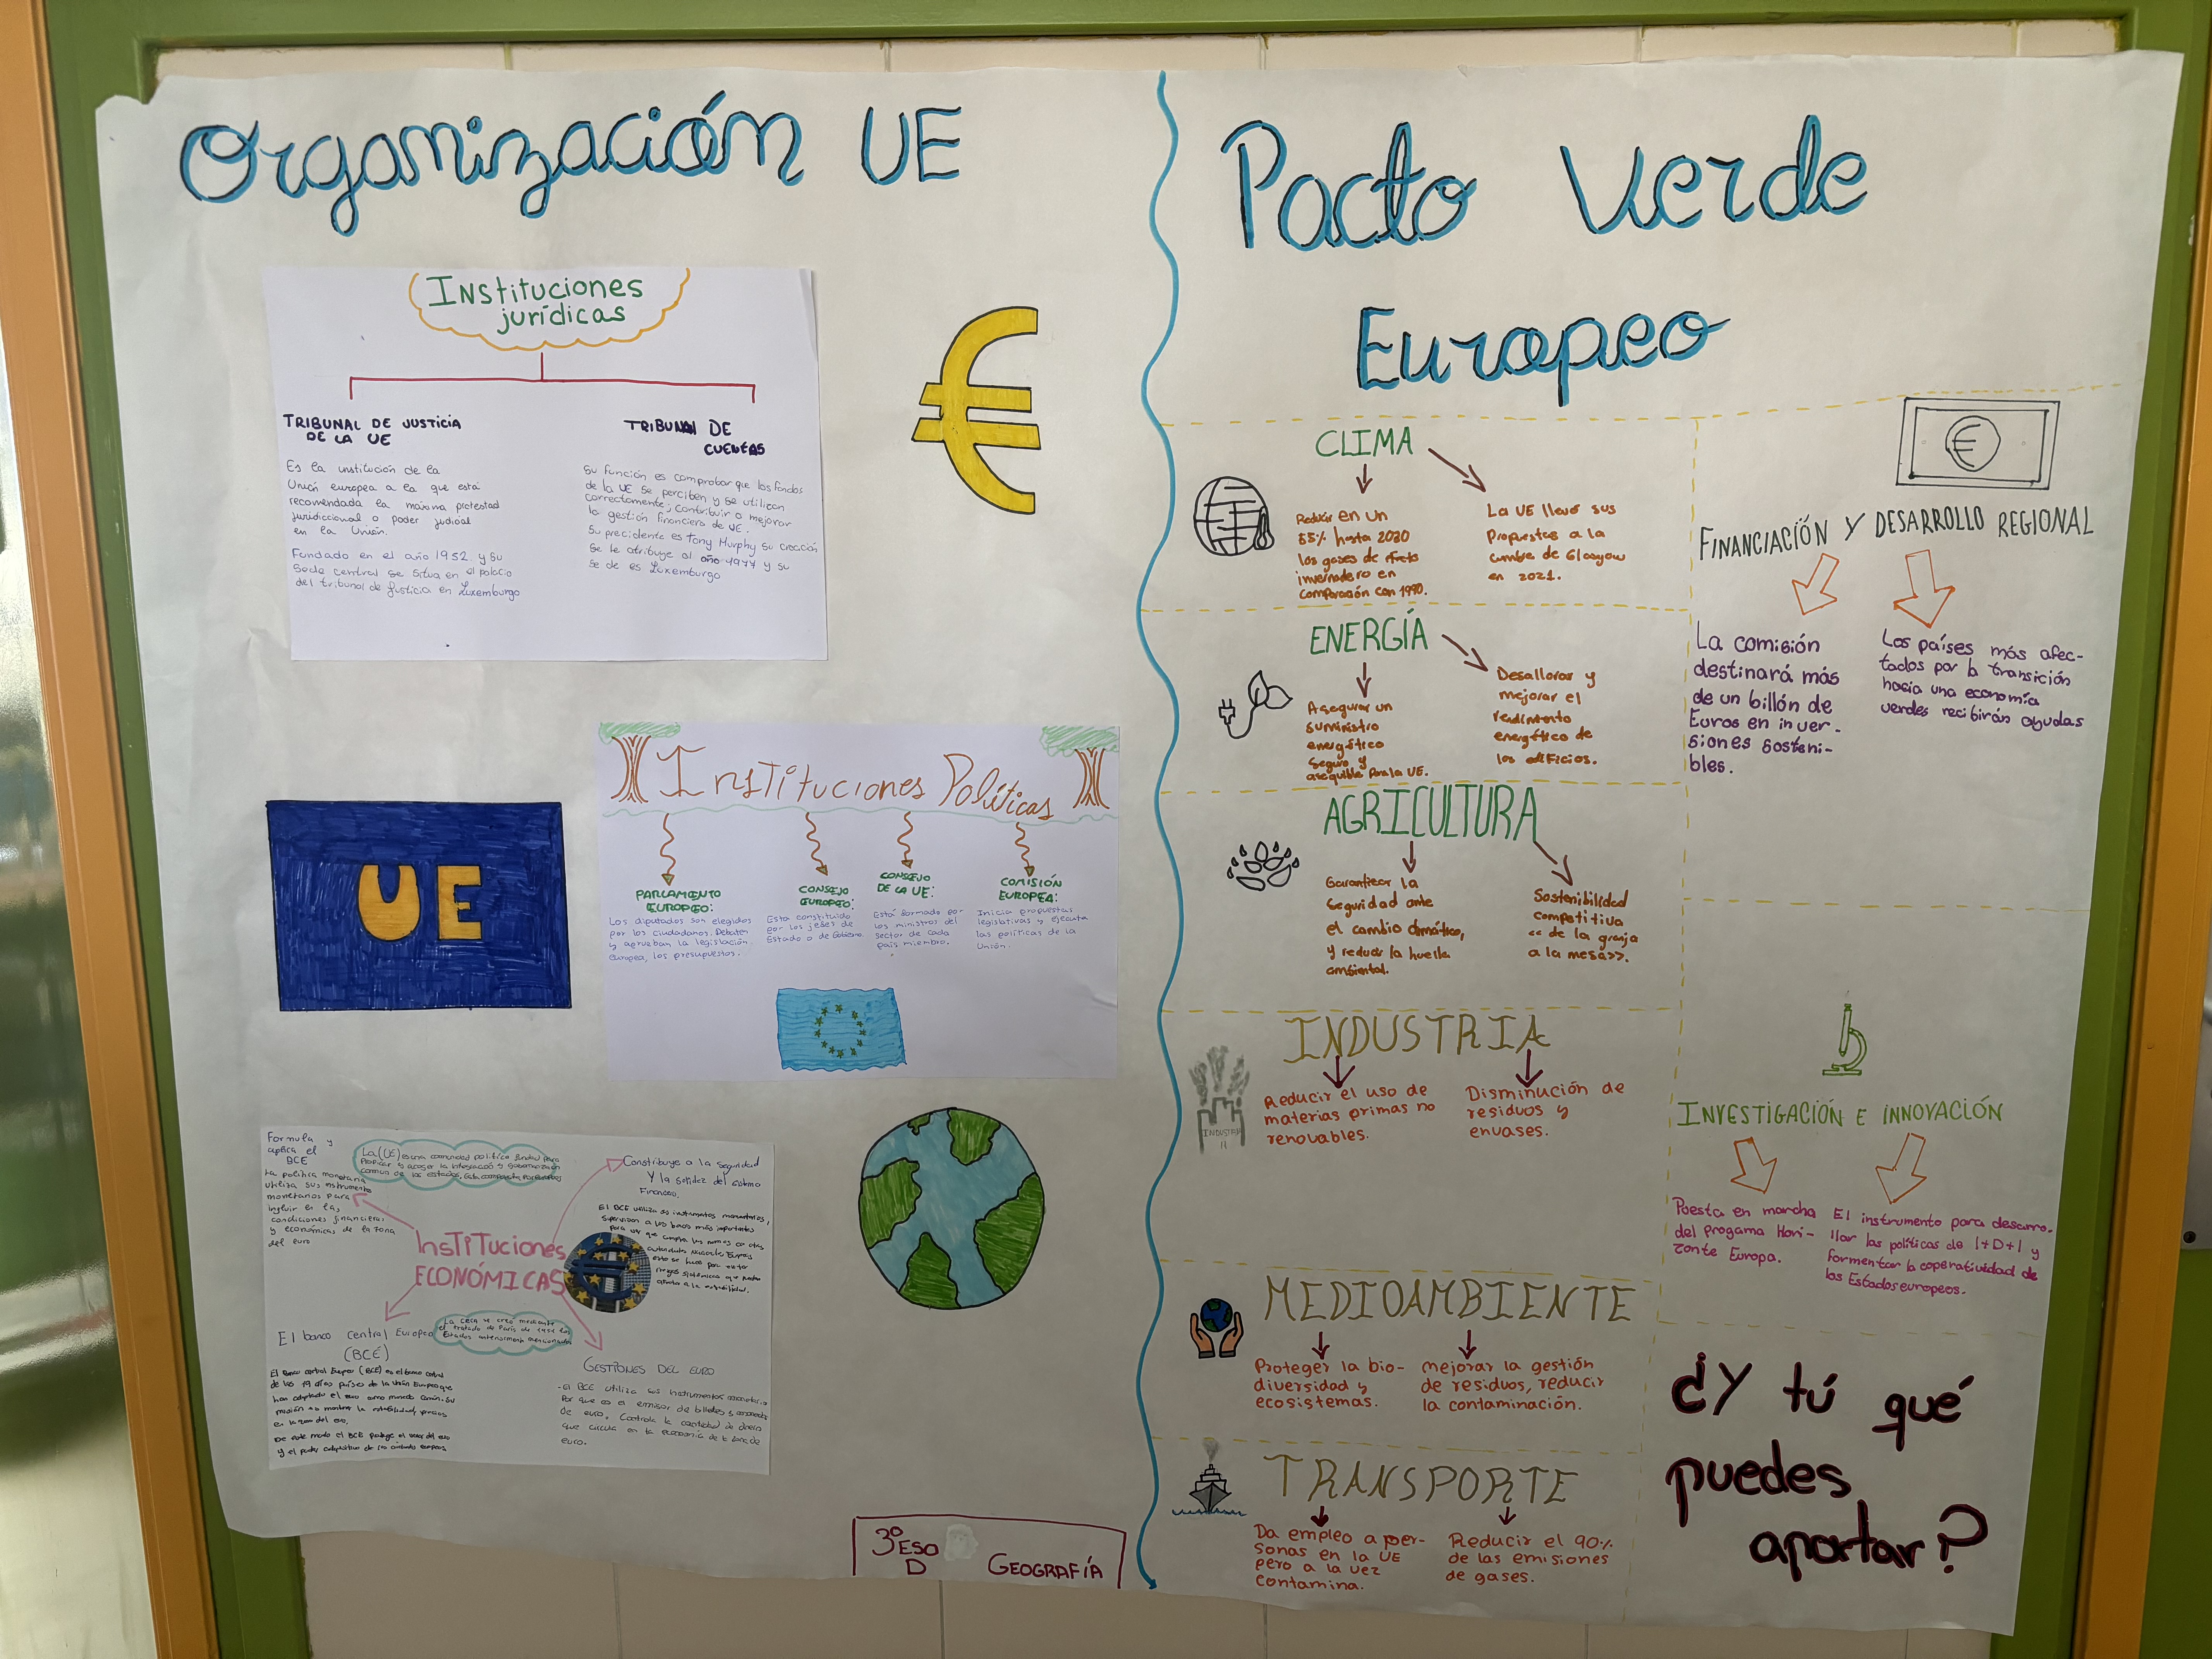 Organización UE
Instituciones
jurídicas
TRIBUNAL DE JUSTICIA
DE LA UE
Es la institución de la
Unión europea a la que está
recomendada la máxima protestad
juridiccional o poder judicial
en la Unión.
Fundado en el año 1952 y su
Sede central se situa en el palacio
del tribunal de Justicia en Luxemburgo
TRIBUNAL DE
CUENTAS
Su función es comprobar que los fondos
de la UE se perciben y se utilizan
correctamente, contribuir a mejorar
la gestión financiera de UE.
Su precidente es Tony Murphy su creación
se le atribuye al año 1977 y su
se de es Luxemburgo
€
UE
Instituciones Políticas
PARLAMENTO
EUROPEO:
Los diputados son elegidos
por los ciudadanos. Debaten
y aprueban la legislación
europea, los presupuestos.
CONSEJO
EUROPEO:
Esta constituido
por los jefes de
Estado o de Gobierno.
CONSEJO
DE LA UE:
Está formado por
los ministros del
sector de cada
país miembro.
COMISIÓN
EUROPEA:
Inicia propuestas
legislativas y ejecuta
las políticas de la
Unión.
Formula y
aplica el
BCE
La política monetaria
utiliza sus instrumentos
monetarios para
influir en las
condiciones financieras
y económicas de la zona
del euro
La (UE) es una comunidad política
Constribuye a la seguridad
Y la solidez del sistema
Financiero.
El BCE utiliza sus instrumentos monetarios,
supervisan a los bancos más importantes
para ver que cumplen las normas
InsTITuciones
ECONÓMICAS
La CECA se creó mediante
el tratado de París de 1951
Estados anteriormente mencionados
El banco Central Europeo
(BCE)
El Banco central Europeo (BCE) es el banco central
de los 19 países de la Unión Europea que
han adoptado el euro como moneda común. Su
misión es mantener la estabilidad precios
en la zona del euro.
De este modo el BCE protege el valor del euro
y el poder adquisitivo de los ciudadanos europeos
GESTIONES DEL EURO
- El BCE utiliza sus instrumentos monetarios
Por que es el emisor de billetes y monedas
De euro. Controla la cantidad de dinero
que circula en la economía de la zona de
euro.
3º ESO
D
GEOGRAFÍA
Pacto Verde
Europeo
CLIMA
Reducir en un
55% hasta 2030
los gases de efecto
invernadero en
comparación con 1990.
La UE llevó sus
Propuestas a la
cumbre de Glasgow
en 2021.
ENERGÍA
Asegurar un
suministro
energético
Seguro y
asequible para la UE.
Desallorar y
mejorar el
rendimiento
energético de
los edificios.
AGRICULTURA
Garantizar la
Seguridad ante
el cambio climático,
y reducir la huella
ambiental.
Sostenibilidad
competitiva
<< de la granja
a la mesa>>.
INDUSTRIA
INDUSTRIA
Reducir el uso de
materias primas no
renovables.
Disminución de
residuos y
envases.
MEDIOAMBIENTE
Proteger la bio-
diversidad y
ecosistemas.
mejorar la gestión
de residuos, reducir
la contaminación.
TRANSPORTE
Da empleo a per-
sonas en la UE
pero a la vez
contamina.
Reducir el 90%
de las emisiones
de gases.
€
FINANCIACIÓN Y DESARROLLO REGIONAL
La comisión
destinará más
de un billón de
Euros en inver-
siones sosteni-
bles.
Los países más afec-
tados por la transición
hacia una economía
verdes recibirán ayudas
INVESTIGACIÓN E INNOVACIÓN
Puesta en marcha
del progama Hori-
zonte Europa.
El instrumento para desarro-
llar las políticas de I+D+I y
formentar la coperatividad de
los Estados europeos.
¿Y tú qué
puedes
aportar?